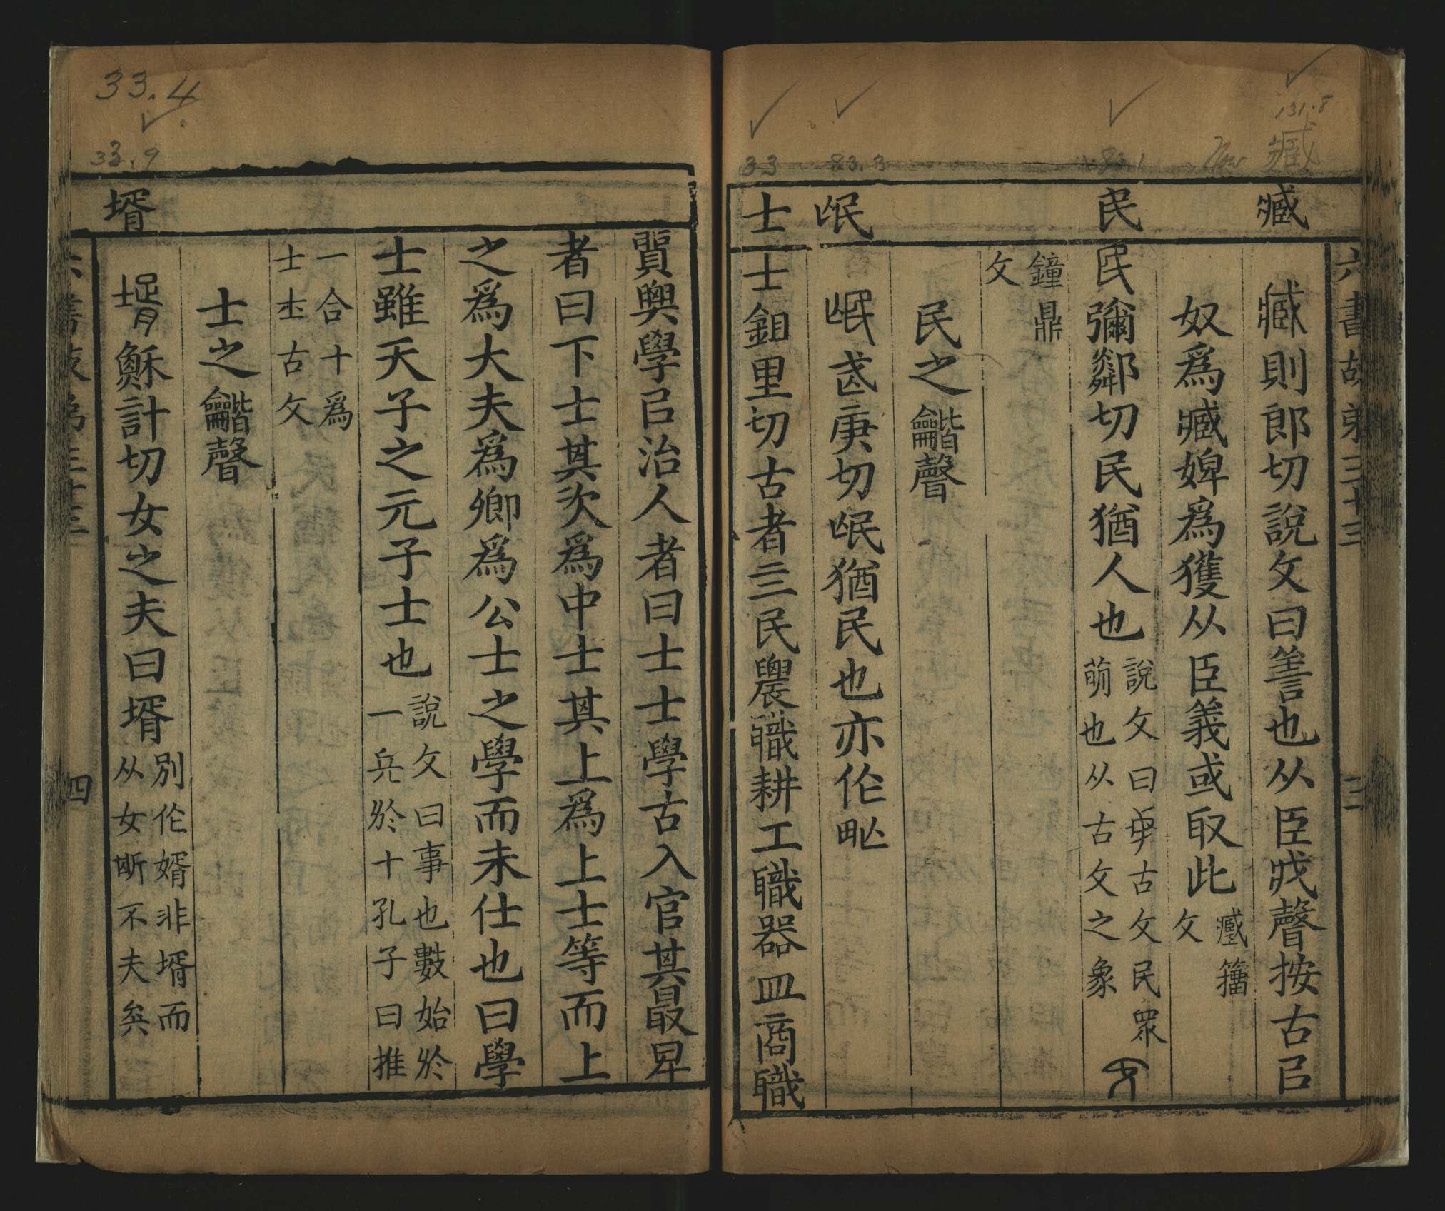 33.4
33.9
33
83.3
83.1
131.8
臧
臧
民
氓
士
六書故弟三十三
三
臧則郎切說文曰善也从臣戕聲按古㠯
奴爲臧婢爲獲从臣義或取此
臧籒
文
民彌鄰切民猶人也
說文曰古文民衆
萌也从古文之象
鐘鼎
文
民之龤聲
氓武庚切氓猶民也亦作甿
士鉏里切古者三民農職耕工職器皿商職
賈興學㠯治人者曰士士學古入官其最卑
者曰下士其次爲中士其上爲上士等而上
之爲大夫爲卿爲公士之學而未仕也曰學
士雖天子之元子士也
說文曰事也數始於
一𠔃於十孔子曰推
一合十爲
士古文
士之龤聲
壻
壻穌計切女之夫曰壻
別作婿非壻而
从女斯不夫矣
六書故弟三十三
四